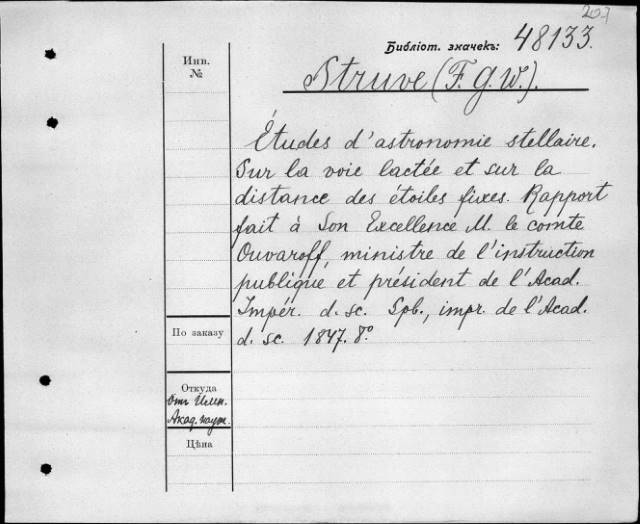 207
Библіот. значекъ: 48133.
Инв.
№
Struve (F. G. W.).
Études d'astronomie stellaire.
Sur la voie lactée et sur la
distance des étoiles fixes. Rapport
fait à Son Excellence M. le comte
Ouvaroff, ministre de l'instruction
publique et président de l'Acad.
Impér. d. sc. Spb., impr. de l'Acad.
d. sc. 1847. 8º
По заказу
Откуда
Отъ Имп.
Акад. наук.
Цѣна